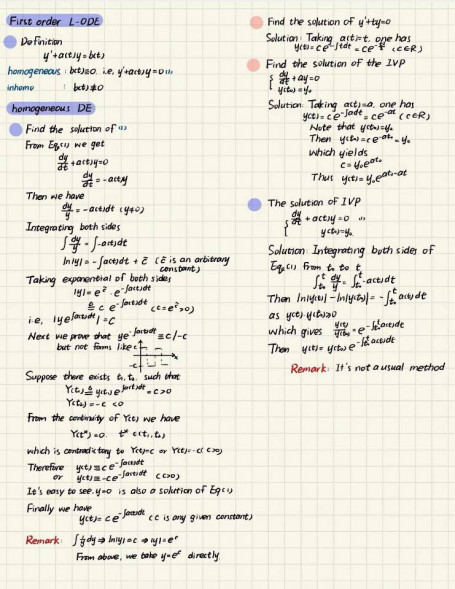 First order L-ODE
Definition
y'+a(t)y=b(t)
homogeneous: b(t)≡0. i.e, y'+a(t)y=0 (1)
inhomo : b(t)≢0
homogeneous DE
Find the solution of (1)
From Eq.(1) we get
dy/dt +a(t)y=0
dy/dt = -a(t)y
Then we have
dy/y = -a(t)dt (y≠0)
Integrating both sides
∫ dy/y = ∫-a(t)dt
ln|y| = -∫a(t)dt + c̄ (c̄ is an arbitrary constant)
Taking exponential of both sides
|y| = e^c̄ · e^-∫a(t)dt
≜ c e^-∫a(t)dt (c=e^c̄>0)
i.e, |y e^∫a(t)dt| = c
Next we prove that ye^-∫a(t)dt ≡ c/-c
but not forms like c
-c
Suppose there exists t₁, t₂, such that
Y(t₁) ≜ y(t₁) e^∫a(t)dt = c>0
Y(t₂) = -c <0
From the continuity of Y(t) we have
Y(t*) = 0. t* ∈(t₁,t₂)
which is contradictory to Y(t)=c or Y(t)=-c (c>0)
Therefore y(t) ≡ ce^-∫a(t)dt
or y(t) ≡ -ce^-∫a(t)dt (c>0)
It's easy to see, y=0 is also a solution of Eq(1)
Finally we have
y(t) = ce^-∫a(t)dt (c is any given constant)
Remark: ∫ 1/y dy ⇒ ln|y| = c ⇒ |y| = e^c
From above, we take y=e^c directly
Find the solution of y'+ty=0
Solution: Taking a(t)=t, one has
y(t) = ce^-∫tdt = ce^-t²/2 (c∈R)
Find the solution of the IVP
{ dy/dt +ay=0
y(t₀)=y₀
Solution: Taking a(t)=a, one has
y(t) = ce^-∫adt = ce^-at (c∈R)
Note that y(t₀)=y₀
Then y(t₀) = ce^-at₀ = y₀
which yields
c = y₀e^at₀
Thus y(t) = y₀e^at₀-at
The solution of IVP
{ dy/dt +a(t)y=0 (1)
y(t₀)=y₀
Solution: Integrating both sides of
Eq.(1) from t₀ to t
∫t₀^t dy/y = ∫t₀^t -a(t)dt
Then ln|y(t)| - ln|y(t₀)| = -∫t₀^t a(t)dt
as y(t)·y(t₀)≥0
which gives y(t)/y(t₀) = e^-∫t₀^t a(t)dt
Then y(t) = y(t₀) e^-∫t₀^t a(t)dt
Remark: It's not a usual method